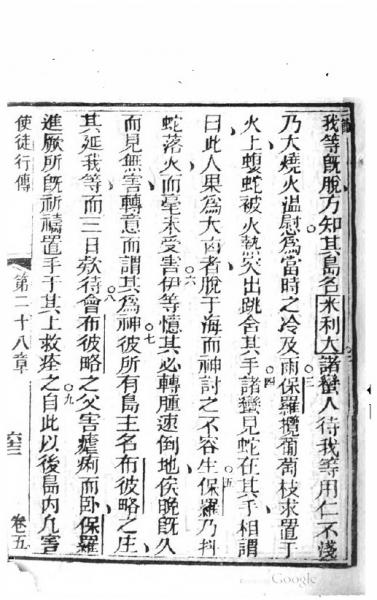 我等既脫方知其島名米利大諸蠻人待我等用仁不淺
乃大燒火溫慰為當時之冷及雨三保羅攬葡萄枝求置于
火上蝮蛇被火熱出跳舍其手四諸蠻見蛇在其手相謂
曰此人果為大凶者脫于海而神討之不容生五保羅乃抖
蛇落火而毫未受害六伊等憶其必轉腫速倒地俟晚既久
而見無害轉意而謂其為神七彼所有島主名布彼略之庄
其延我等而三日欵待八會布彼略之父害瘧痢而卧保羅
進厥所既祈禱置手于其上救痊之九自此以後島內凡害
使徒行傳 第二十八章 六三 卷五
Google